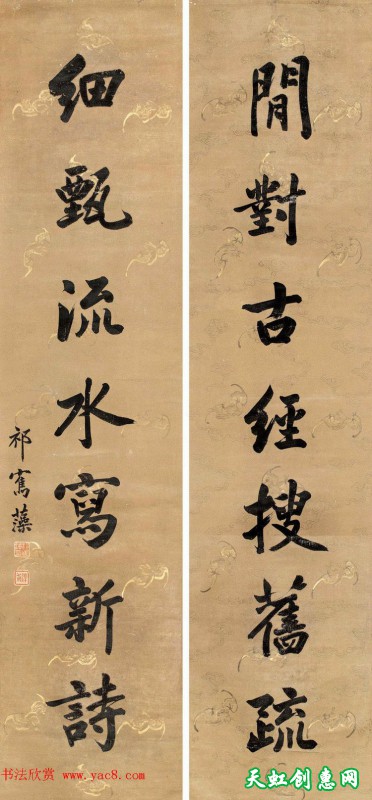 閒對古經搜舊疏
細甄流水寫新詩
祁寯藻
书法欣赏 www.yac8.com
天虹创惠网